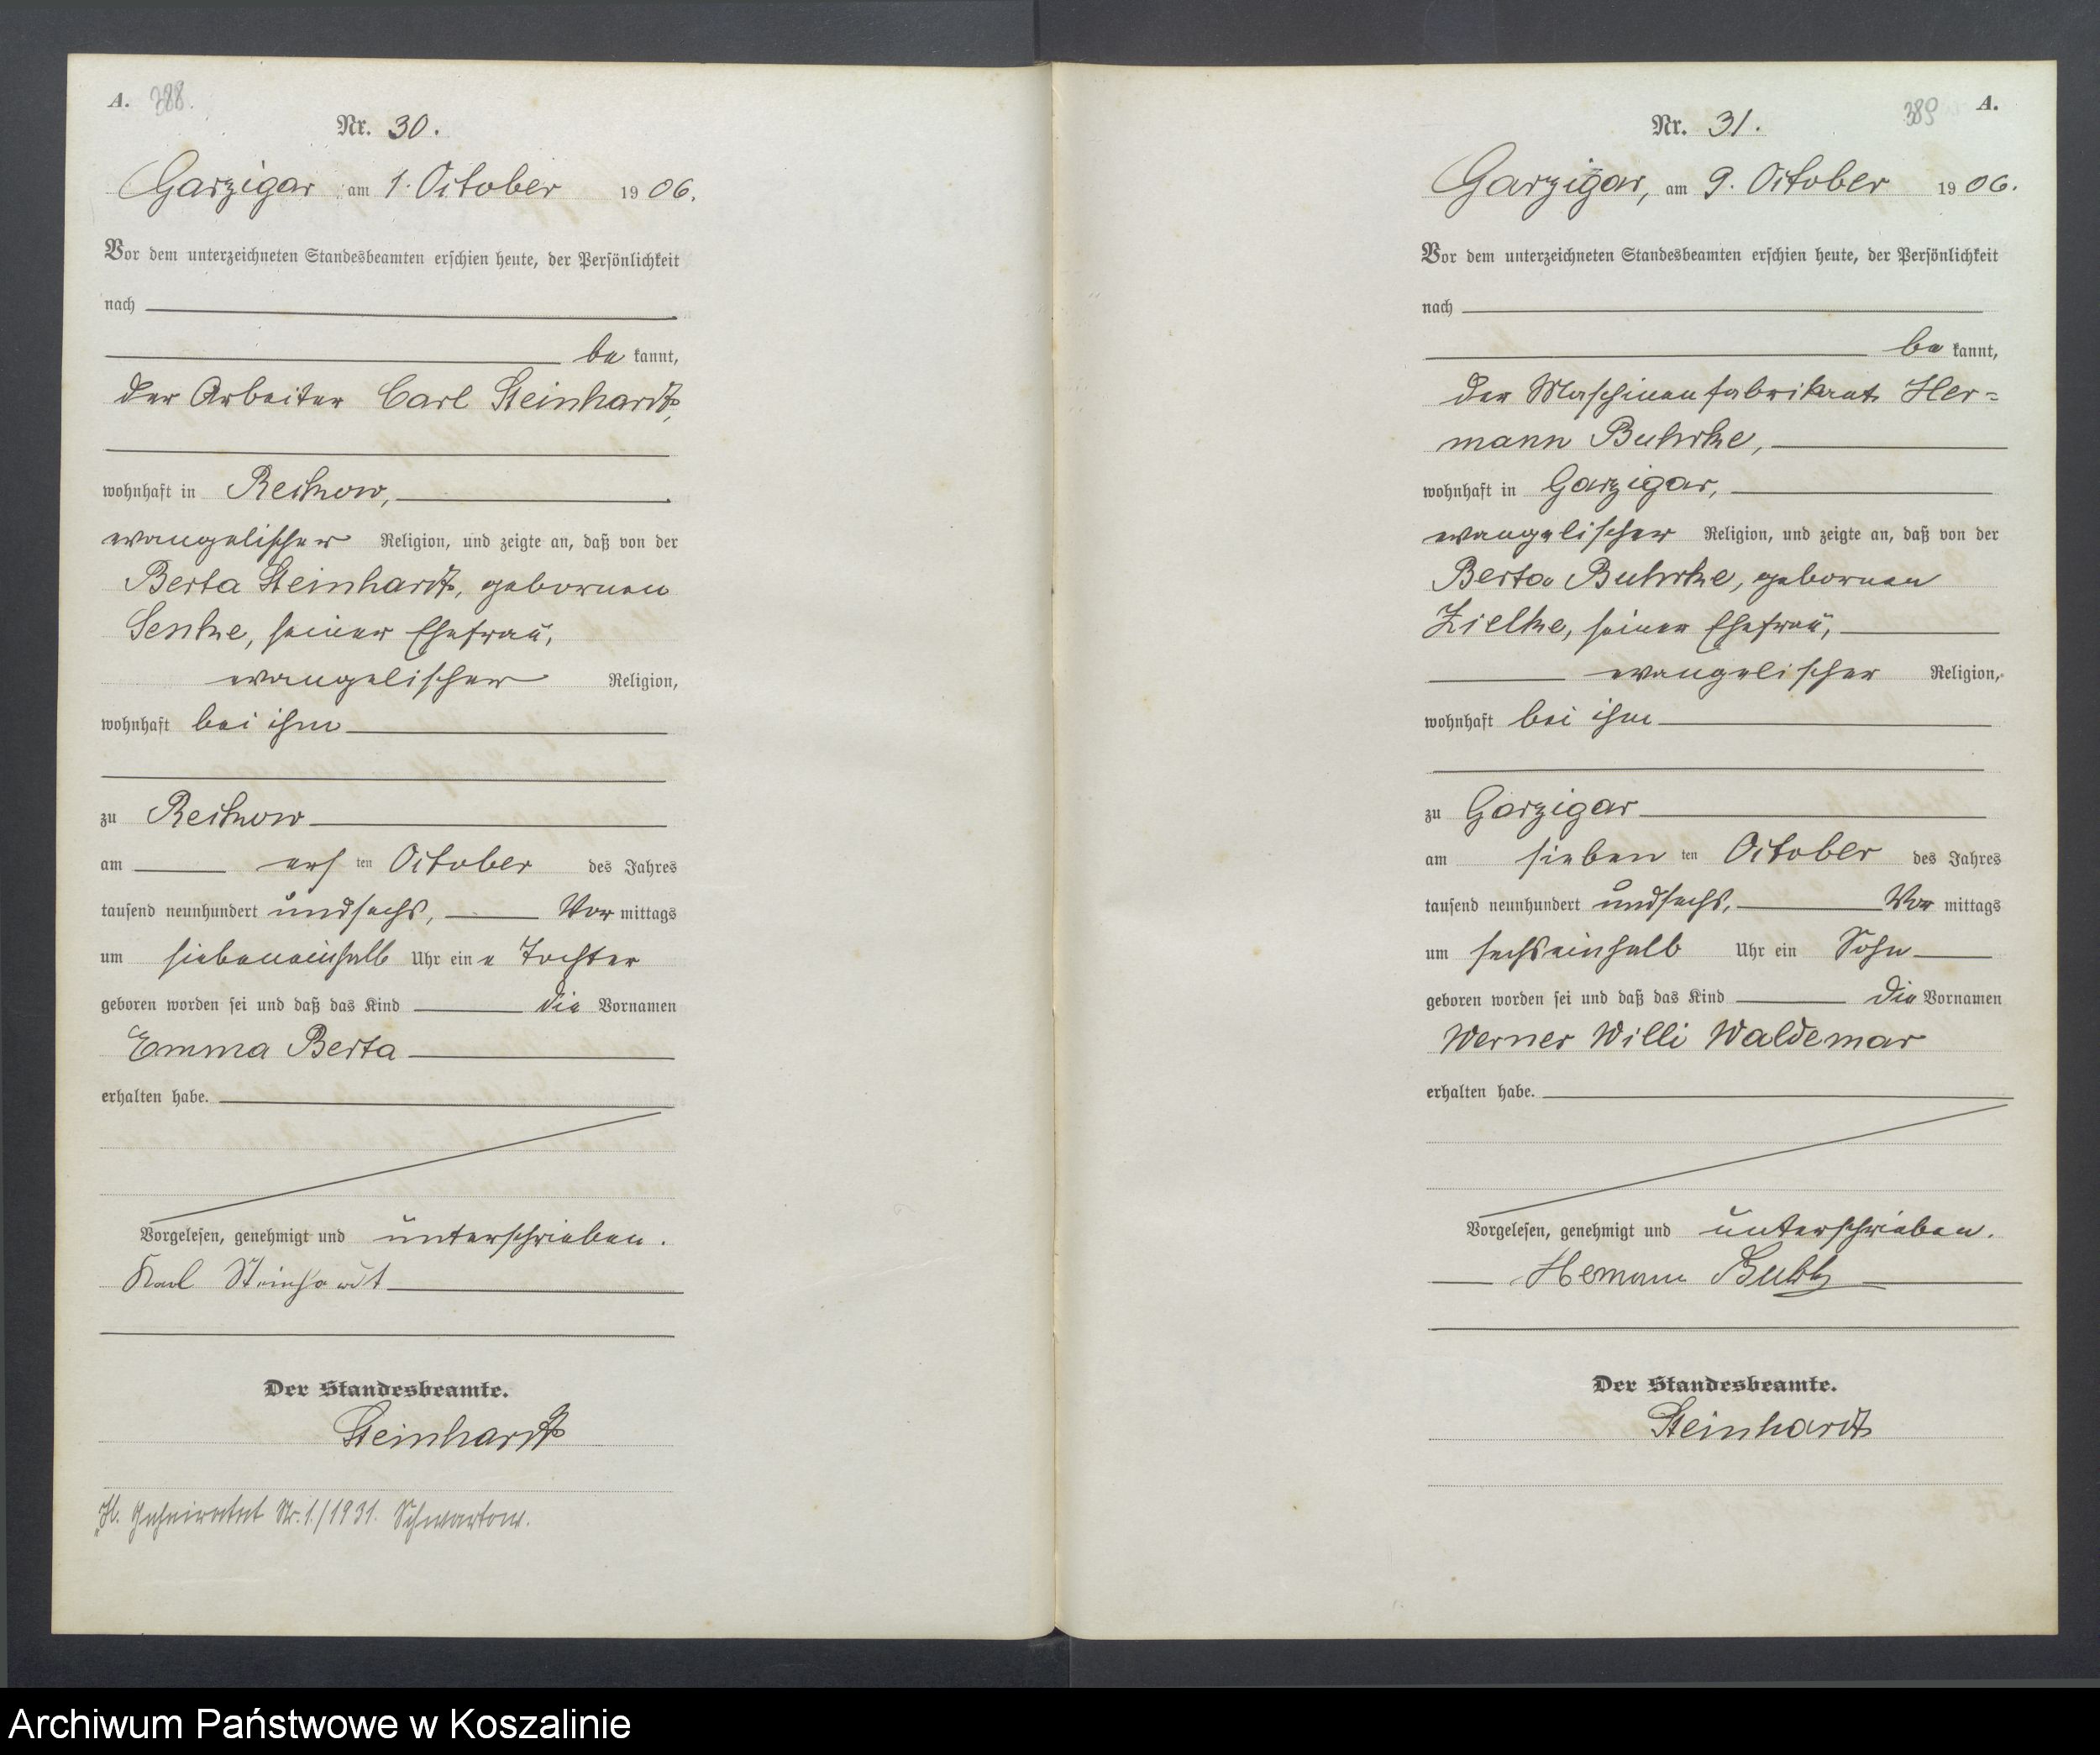 A. 388.
Nr. 30.
Garzigar am 1. October 1906.
Vor dem unterzeichneten Standesbeamten erschien heute, der Persönlichkeit
nach
be kannt,
der Arbeiter Carl Steinhardt,
wohnhaft in Reckow,
evangelischer Religion, und zeigte an, daß von der
Berta Steinhardt, gebornen
Senke, seiner Ehefrau,
evangelischer Religion,
wohnhaft bei ihm
zu Reckow
am ersten October des Jahres
tausend neunhundert undsechs, Vor mittags
um siebeneinhalb Uhr eine Tochter
geboren worden sei und daß das Kind die Vornamen
Emma Berta
erhalten habe.
Vorgelesen, genehmigt und unterschrieben.
Karl Steinhardt
Der Standesbeamte.
Steinhardt
Geheiratet Nr. 1./1931. Schwartow.
389 A.
Nr. 31.
Garzigar, am 9. October 1906.
Vor dem unterzeichneten Standesbeamten erschien heute, der Persönlichkeit
nach
be kannt,
der Maschinenfabrikant Her=
mann Buhrke,
wohnhaft in Garzigar,
evangelischer Religion, und zeigte an, daß von der
Berta Buhrke, gebornen
Zielke, seiner Ehefrau,
evangelischer Religion,
wohnhaft bei ihm
zu Garzigar
am siebenten October des Jahres
tausend neunhundert undsechs, Vor mittags
um sechseinhalb Uhr ein Sohn
geboren worden sei und daß das Kind die Vornamen
Werner Willi Waldemar
erhalten habe.
Vorgelesen, genehmigt und unterschrieben.
Hemann
Der Standesbeamte.
Steinhardt
Archiwum Państwowe w Koszalinie